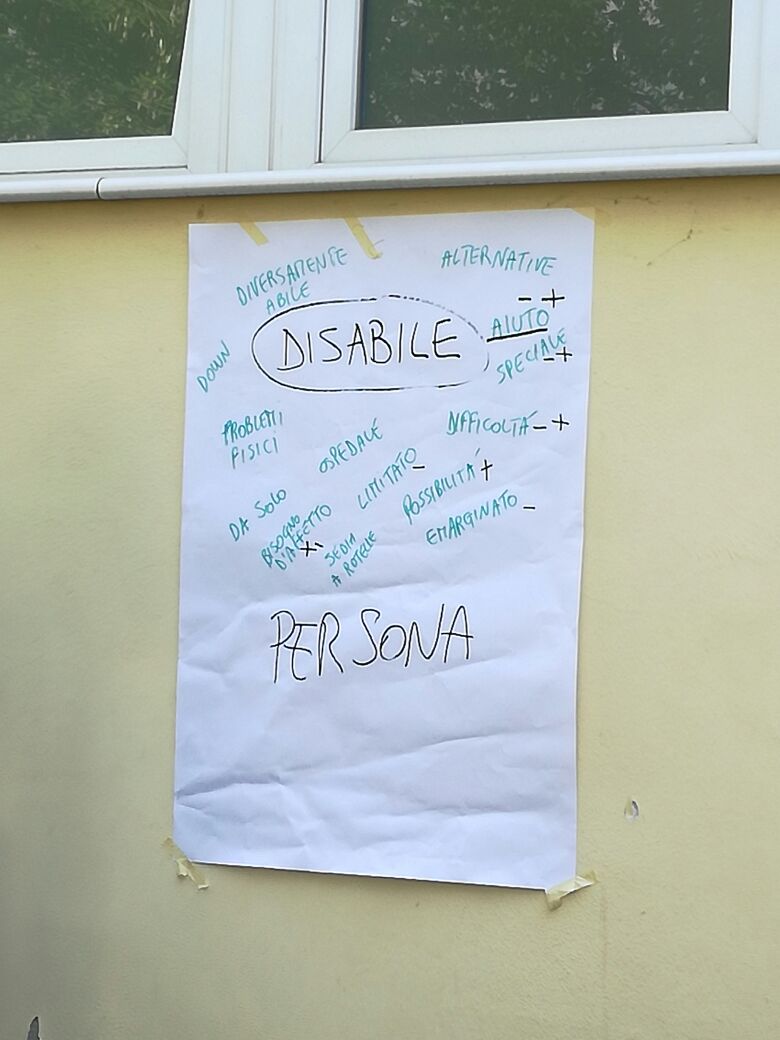 DIVERSAMENTE
ABILE
ALTERNATIVE
- +
DISABILE
AIUTO
SPECIALE - +
DOWN
PROBLEMI
FISICI
OSPEDALE
DIFFICOLTÀ - +
LIMITATO -
POSSIBILITÀ +
DA SOLO
BISOGNO
D'AFFETTO
+ -
SEDIA
A ROTELLE
EMARGINATO -
PERSONA